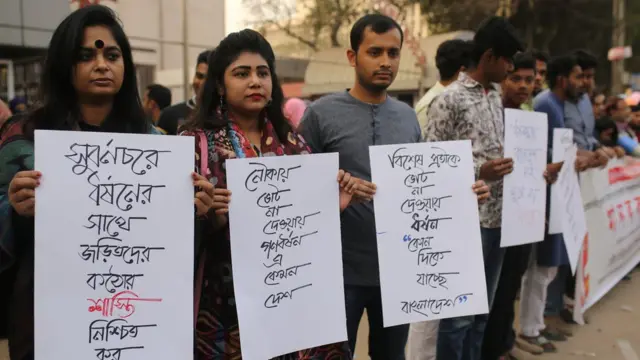 সুবর্নচরে
ধর্ষনের
সাথে
জড়িতদের
কঠোর
শাস্তি
নিশ্চিত
কর
নৌকায়
ভোট
না
দেওয়ায়
গণধর্ষন
এ
কেমন
দেশ
বিশেষ প্রতীকে
ভোট
না
দেওয়ায়
ধর্ষন
"কোন
দিকে
যাচ্ছে
বাংলাদেশ"